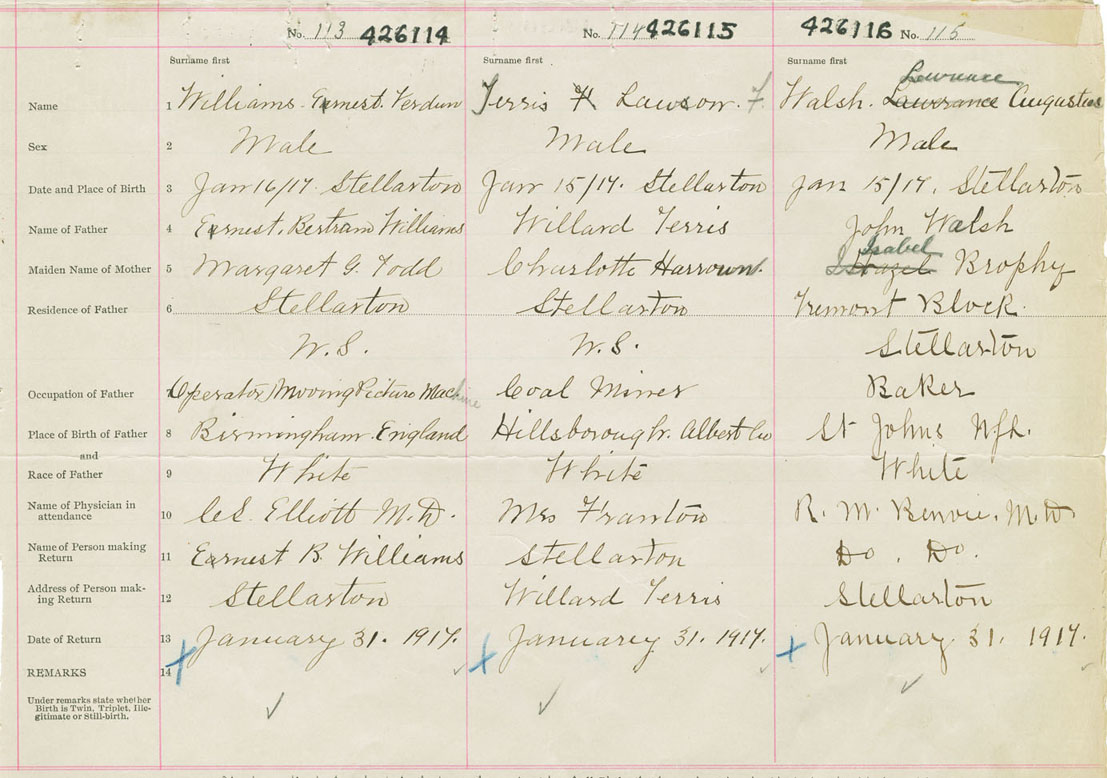 No. 113 426114 No. 114 426115 426116 No. 115
Surname first Surname first Surname first
Lawrence
Name 1 Williams. Ernest. Verdun Terris Lawson. F Walsh. Lawrance Augustus
Sex 2 Male Male Male
Date and Place of Birth 3 Jan 16/17. Stellarton Jan 15/17. Stellarton Jan 15/17. Stellarton
Name of Father 4 Ernest. Bertram Williams Willard Terris John Walsh
Isabel
Maiden Name of Mother 5 Margaret G. Todd Charlotte Harroun. Brophy
Residence of Father 6 Stellarton Stellarton Tremont Block.
N.S. N.S. Stellarton
Occupation of Father 7 Operator Moving Picture Machine Coal Miner Baker
Place of Birth of Father 8 Birmingham. England Hillsborough. Albert Co St Johns Nfld.
and
Race of Father 9 White White White
Name of Physician in attendance 10 C.S. Elliott M.D. Mrs Franton R. M. Benvie. M.D
Name of Person making Return 11 Earnest B Williams Stellarton Do. Do.
Address of Person making Return 12 Stellarton Willard Terris Stellarton
Date of Return 13 January 31. 1917. Januarey 31. 1917. January 31. 1917.
REMARKS 14
Under remarks state whether
Birth is Twin, Triplet, Ille-
gitimate or Still-birth.